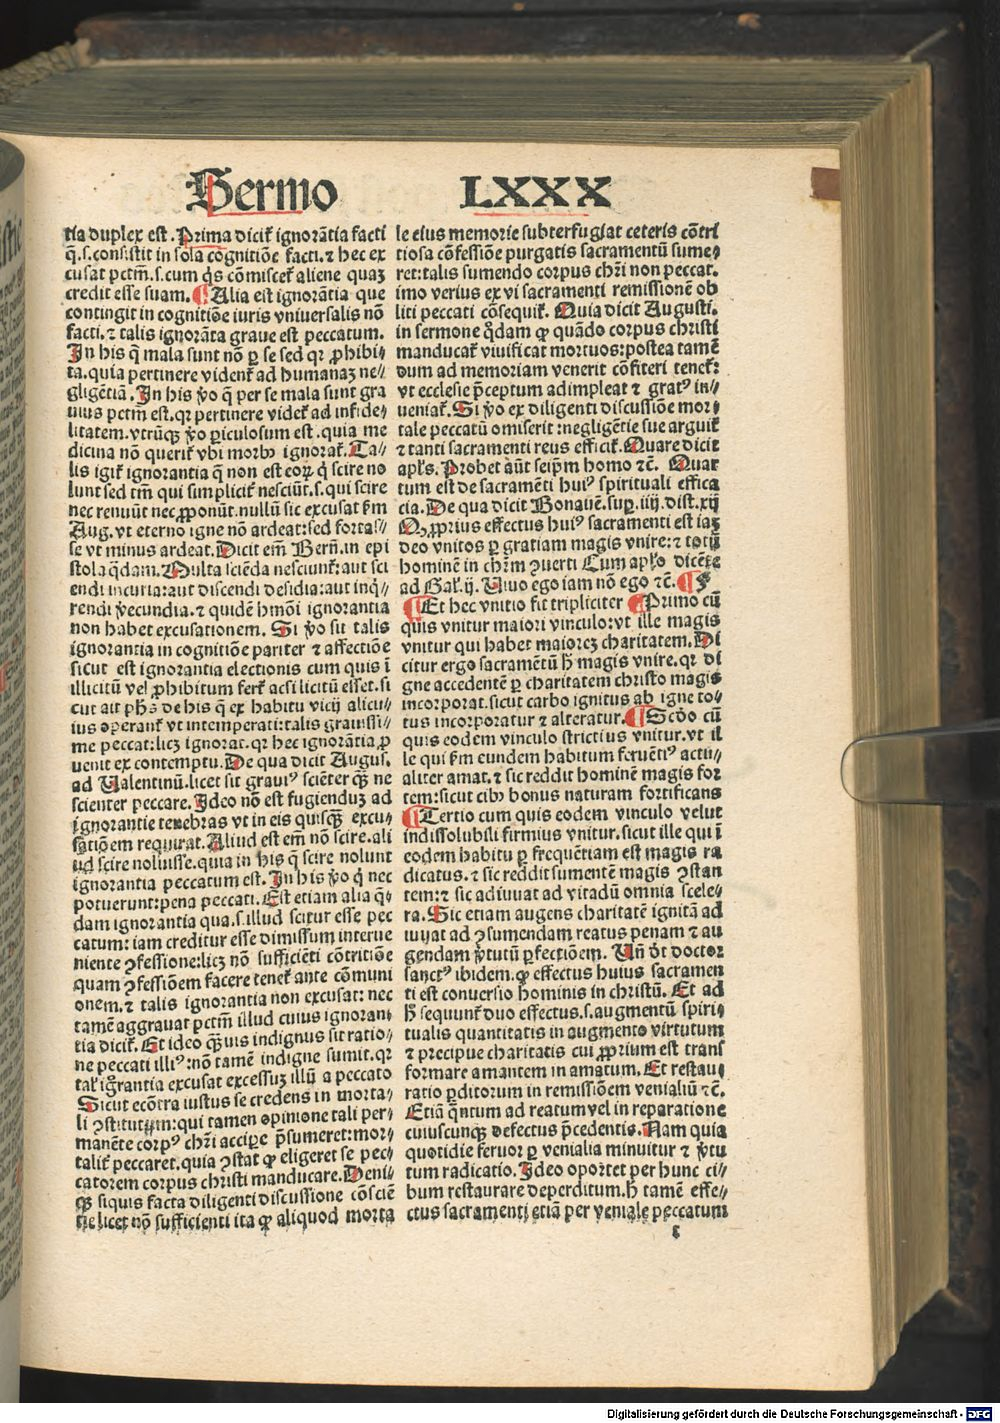 Sermo LXXX
tia duplex est. Prima dicit᷑ ignorātia facti
q̄.s.consistit in sola cognitiōe facti. ⁊ hec ex
cusat pctm̄.s.cum q̇s cōmiscet᷑ aliene quaꝫ
credit esse suam. ¶ Alia est ignorātia que
contingit in cognitiōe iuris vniuersalis nō
facti. ⁊ talis ignorāta graue est peccatum.
In his q̄ mala sunt nō ꝑ se sed qꝛ ꝓhibi⸗
ta. quia pertinere vident᷑ ad humanaꝫ ne⸗
gligētiā. In his v̄o q̄ per se mala sunt gra
uius pctm̄ est. qꝛ pertinere videt᷑ ad infide⸗
litatem. vtrūqꝫ v̄o ꝑiculosum est. quia me
dicina nō querit᷑ vbi morbꝰ ignorat᷑. Ta⸗
lis igit᷑ ignorantia q̄ non est eoꝝ q̇ scire no
lunt sed tm̄ qui simplicit᷑ nesciūt.s. qui scire
nec renuūt nec ꝓponūt. nullū sic excusat ẜm
Aug. vt eterno igne nō ardeat: sed fortas⸗
se vt minus ardeat. Dicit em̄ Bern̄. in epi
stola q̇dam. Multa sciēda nesciunt᷑: aut sci
endi incuria: aut discendi desidia: aut inq̇⸗
rendi v̄ecundia. ⁊ quidē hmōi ignorantia
non habet excusationem. Si v̄o sit talis
ignorantia in cognitiōe pariter ⁊ affectiōe
sicut est ignorantia electionis cum quis ī
illicitū vel ꝓhibitum fert᷑ acsi licitū esset. si
cut ait ph̄s de his q̄ ex habitu vicij alicu⸗
ius operant᷑ vt intemperati: talis grauissi⸗
me peccat: licꝫ ignorat. qꝛ hec ignorātia ꝓ
uenit ex contemptu. De qua dicit Augus.
ad Valentinū. licet sit grauiꝰ sciēter qꝫ̄ ne
scienter peccare. Ideo nō est fugienduꝫ ad
ignorantie tenebras vt in eis quisqꝫ excu⸗
satiōem requirat. Aliud est em̄ nō scire. ali
ud scire noluisse. quia in his q̄ scire nolunt
ignorantia peccatum est. In his v̄o q̇ nec
potuerunt: pena peccati. Est etiam alia q̄⸗
dam ignorantia qua.s.illud scitur esse pec
catum: iam creditur esse dimissum interue
niente ꝯfessione: licꝫ nō sufficiēti cōtritiōe
quam ꝯfessiōem facere tenet᷑ ante cōmuni
onem. ⁊ talis ignorantia non excusat: nec
tamē aggrauat pctm̄ illud cuius ignoran⸗
tia dicit᷑. Et ideo qꝫ̄uis indignus sit ratio⸗
ne peccati illiꝰ: nō tamē indigne sumit. qꝛ
tal᷑ ig̊rantia excusat excessuꝫ illū a peccato
Sicut ecōtra iustus se credens in morta⸗
li ꝯstitutum: qui tamen opinione tali per⸗
manēte corpꝰ chr̄i accipe p̄sumeret: mor⸗
talit᷑ peccaret. quia ꝯstat ꝙ eligeret se pec⸗
catorem corpus christi manducare. Deni⸗
qꝫ siquis facta diligenti discussione cōsciē
tie licet nō sufficienti ita ꝙ aliquod morta
le eius memorie subterfugiat ceteris cōtri
tiosa cōfessiōe purgatis sacramentū sume⸗
ret: talis sumendo corpus chr̄i non peccat.
imo verius ex vi sacramenti remissionē ob
liti peccati cōsequit᷑. Quia dicit Augusti.
in sermone q̊dam ꝙ quādo corpus christi
manducat᷑ viuificat mortuos: postea tamē
dum ad memoriam venerit cōfiteri tenet᷑:
vt ecclesie p̄ceptum adimpleat ⁊ gratꝰ in⸗
ueniat᷑. Si v̄o ex diligenti discussiōe mor⸗
tale peccatū omiserit: negligētie sue arguit᷑
⁊ tanti sacramenti reus efficit᷑. Quare dicit
apl̄s. Probet aūt seip̄m homo ⁊c̄. Quar
tum est de sacramēti huiꝰ spirituali effica
cia. De qua dicit Bonauē. suꝑ. iiij. dist. xij
Q, ꝓprius effectus huiꝰ sacramenti est iaꝫ
deo vnitos ꝑ gratiam magis vnire: ⁊ totū
hominē in chr̄m ꝯuerti Cum apl̄o dicēte
ad Gal̄.ij. Viuo ego iam nō ego ⁊c̄. ¶
¶ Et hec vnitio fit tripliciter ¶ Primo cū
quis vnitur maiori vinculo: vt ille magis
vnitur qui habet maiorcꝫ charitatem. Di
citur ergo sacramētū h̄ magis vnire. qꝛ di
gne accedentē ꝑ charitatem christo magis
incorporat. sicut carbo ignitus ab igne to⸗
tus incorporatur ⁊ alteratur. ¶ Scd̄o cū
quis eodem vinculo strictius vnitur. vt il
le qui ẜm eundem habitum feruētiꝰ actu⸗
aliter amat. ⁊ sic reddit hominē magis for
tem: sicut cibꝰ bonus naturam fortificans
¶ Tertio cum quis eodem vinculo velut
indissolubili firmius vnitur. sicut ille qui ī
eodem habitu ꝑ frequētiam est magis ra
dicatus. ⁊ sic reddit sumentē magis ꝯstan
tem: ⁊ sic adiuuat ad vitādū omnia scele⸗
ra. Sic etiam augens charitatē ignitā ad
iuuat ad ꝯsumendam reatus penam ⁊ au
gendam v̄tutū ꝑfectiōem. Vn̄ dt̄ doctor
sanctꝰ ibidem. ꝙ effectus huius sacramen
ti est conuersio hominis in christū. Et ad
h̄ sequunt᷑ duo effectus.s. augmentū spiri⸗
tualis quantitatis in augmento virtutum
⁊ precipue charitatis cui ꝓprium est trans
formare amantem in amatum. Et restau⸗
ratio ꝑditorum in remissiōem venialiū ⁊c̄.
Etiā q̄ntum ad reatum vel in reparatione
cuiuscunqꝫ defectus p̄cedentis. Nam quia
quotidie feruor ꝑ venialia minuitur ⁊ v̄tu
tum radicatio. Ideo oportet per hunc ci⸗
bum restaurare deperditum. h̄ tamē effe⸗
ctus sacramenti etiā per veniale peccatum
Digitalisierung gefördert durch die Deutsche Forschungsgemeinschaft - DFG